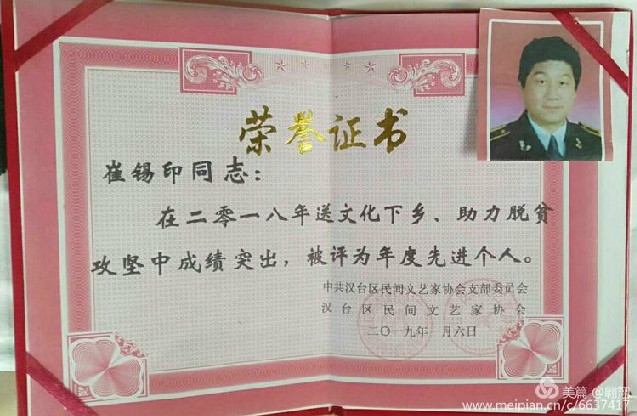 荣誉证书
崔锡印同志：
在二零一八年送文化下乡、助力脱贫
攻坚中成绩突出，被评为年度先进个人。
中共汉台区民间文艺家协会支部委员会
汉台区民间文艺家协会
二〇一九年 月六日
美篇
www.meipian.cn/c/6637417